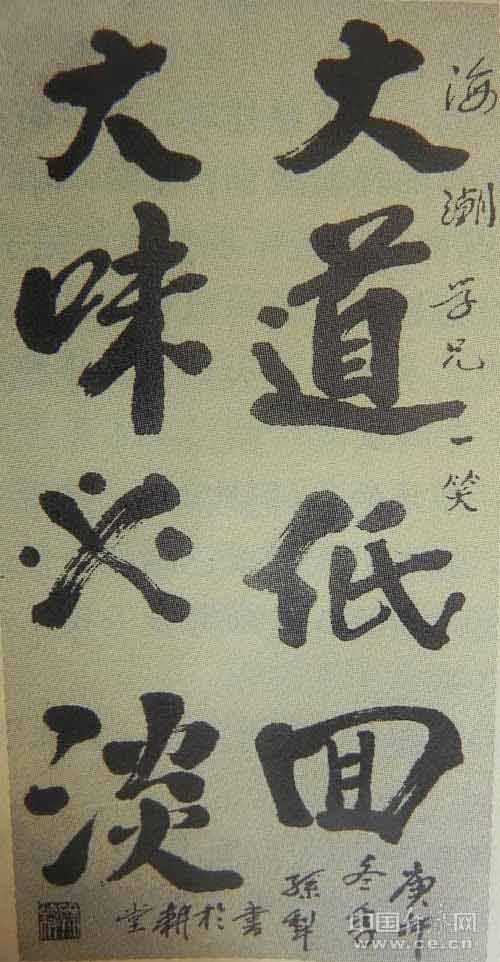 海潮学兄一笑
大道低回
大味必淡
庚午
冬季
孫犁
书於耕堂
中国经济网
www.ce.cn